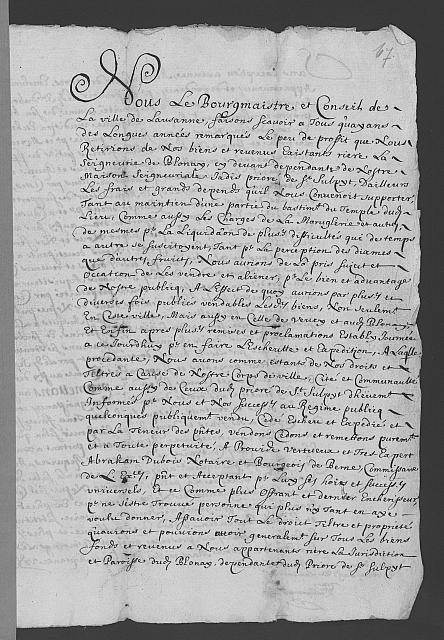 67
Nous Le Bourgmaistre et Conseil de
La ville de Lausanne, faisons scavoir a Tous qu'ayans
des Longues années remarqués Le peu de profit que Nous
Retirions de Nos biens et revenus Existants riere La
Seigneurie de Blonay, cy devant dependante de Nostre
Maison Seigneuriale Jadis prioré de St Sulpyt, D'ailleurs
Les frais et grands depends qu'il Nous Convenoit supporter,
Tant au maintien d'une partie du bastimt du Temple dudt
Lieu, Comme aussy Les Charges de La Maruglerie et autres
de mesmes pr La Liquidaõn de plusrs difficultés qui de temps
a autre se suscitoyent Tant pr La perception des diames
que d'autres fruits, Nous aurions de Là pris sujet et
Occation de Les vendre et aliener, pr Le bien et advantage
de Nostre publicq, A L'effect de quoy aurions par plusrs et
diverses fois publiés vendables Lesdts biens, Non seulemt
En Ceste ville, Mais aussy en Celle de Vevey et audt Blonay
Et Enfin apres plusrs remises et proclamations Estably Journée
a ce Jourdhuy pr en faire L'escheutte et Expedition, A Laqlle
procedants, Nous avons comme estants de Nos droits et
Tiltres a Cause de Nostre Corps de ville, Cité et Communaulté
Comme aussy de Ceux dudt prioré de St Sulpyt d'hevemt
Informés pr Nous et Nos Successrs au Regime publicq
quelconques publiquemt vendu, Cedé Escheu et Expedié et
par La Teneur des pñtes, vendons Cedons et remettons puremt
et a Toute perpetuité, A Provide Vertueux et Tres Expert
Abraham Dubois Notaire et Bourgeois de Berne, Commissaire
de L. Exces, pñt et Acceptant pr Luy ses hoirs et successrs
universels, Et ce Comme plus offrant et dernier Encherisseur,
pr ne s'estre Trouvé personne qui plus ny Tant en aye
voulu donner, Assavoir Tout Le droit Tiltre et proprieté
qu'avions et pouvions avoir generalemt sur Tous Les biens
fonds et revenus a Nous appartenants riere la Jurisdiction
et Paroisse dudt Blonay, dependants dudt Prioré de St Sulpyt